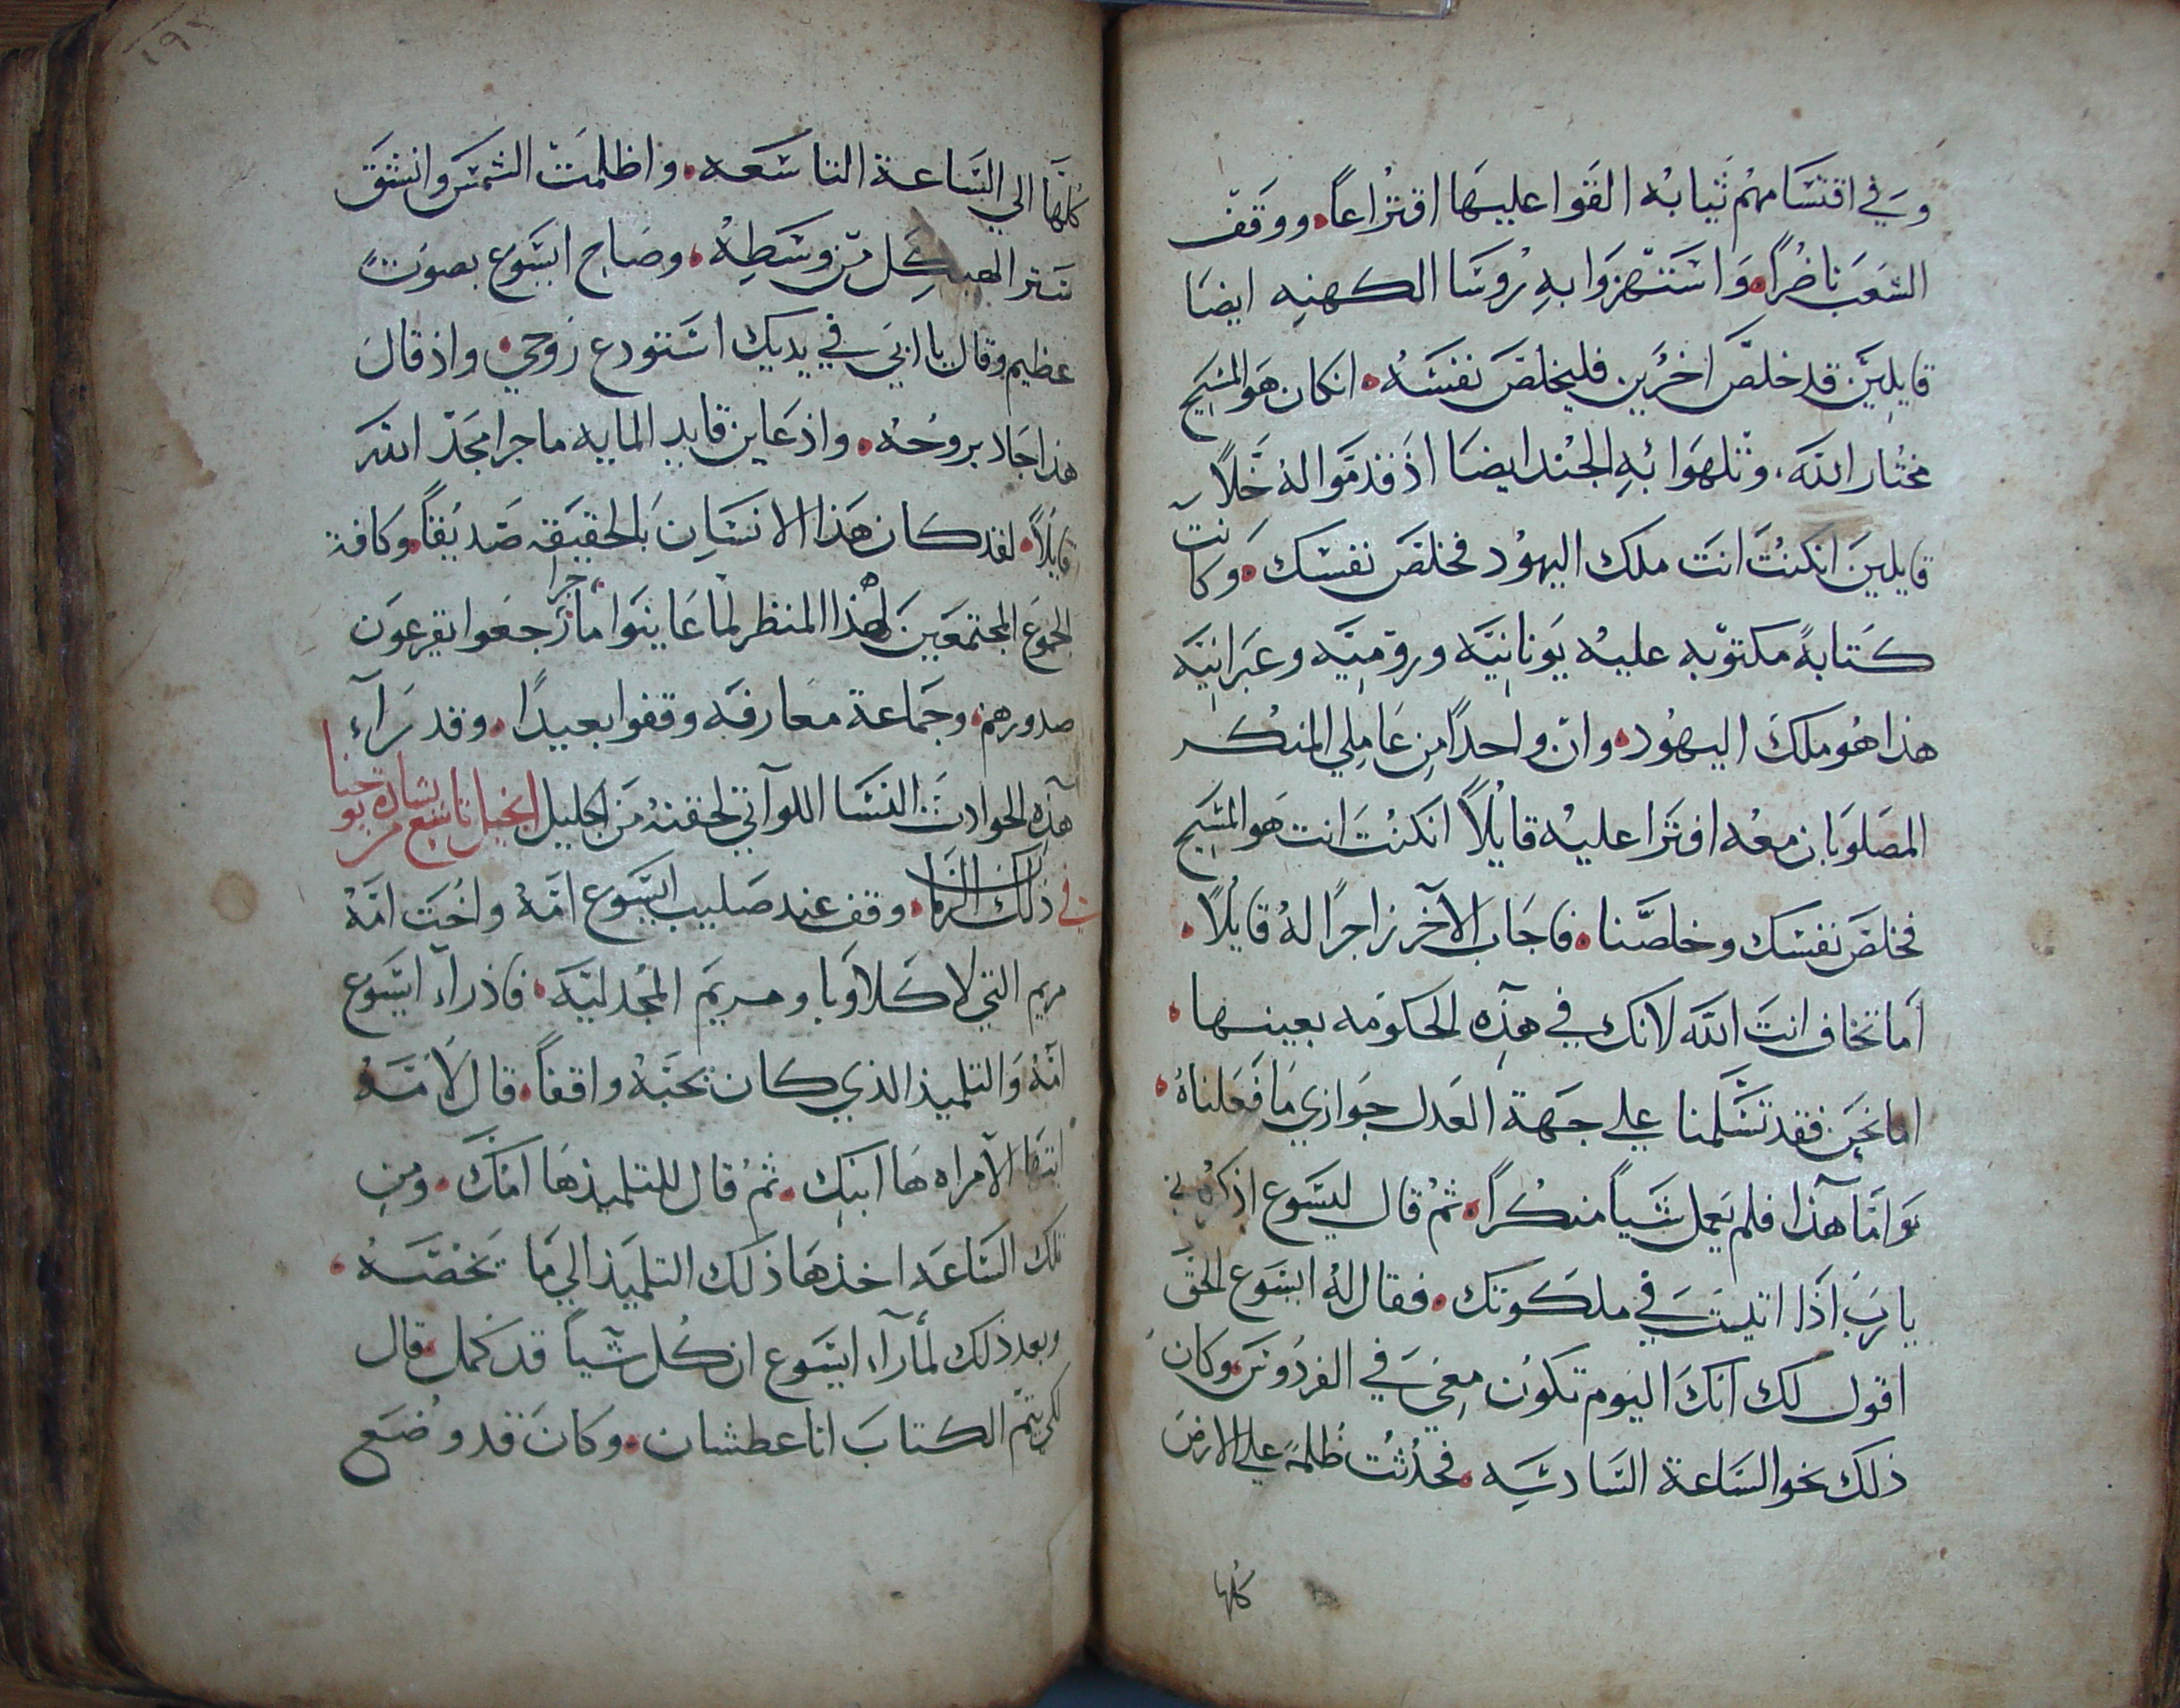 وفي اقتسامهم ثيابه القوا عليها اقتراعاً. ووقف
الشعب ناضراً. واستهزوا بهِ رُوسا الكهنهِ ايضا
قايلين قد خلصَ اخرين فليخلصَ نفسهُ. انكان هو المسيح
مختار الله. وتلهوا بهِ الجند ايضا اذ قدموا لهُ خلاً
قايلين انكنتَ انت ملك اليهود فخلص نفسك. وكانت
كتابةً مكتوبه عليه يونانيَّه وروميَّه وعبرانيَّه
هذا هُو ملك اليهُود. وان واحداً من عاملي المنكر
المصلوبان معه افترا عليه قايلاً انكنت انت هو المسيح
فخلص نفسك وخلصنا. فاجاب الآخر زاجراً لهُ قايلاً.
اما تخاف انت الله لانك في هذهِ الحكومه بعينها.
اما نحن فقد تسلمنا علي جهة العدل جوازي ما فعلناهُ.
واما هذا فلم يعمل شياً منكراً. ثم قال ليسوع اذكرني
يا رب اذا اتيت في ملكوتك. فقال لهُ ايسوع الحق
اقول لك انك اليوم تكون معي في الفردوس. وكان
ذلك نحو الساعة السادسه. فحدثت ظلمة علي الارض
كلها
١٩٧
كلها الي الساعة التاسعه. واظلمت الشمس وانشق
ستر الهيكل من وسطهِ. وصاح ايسوع بصوت
عظيم وقال يا ابي في يديك استودع روحي. واذ قال
هذا جاد بروحه. واذ عاين قايد المايه ما جرا مجد الله
قايلاً. لقد كان هذا الانسان بالحقيقه صديقاً. وكافة
الجموع المجتمعين لهذا المنظر لما عاينوا ما جرا رجعوا يقرعون
صدورهم. وجماعة معارفه وقفوا بعيداً. وقد رآء
هذهِ الحوادث النسا اللوآتي لحقنهُ من الجليل انجيل تاسع من بشارة يوحنا
في ذلك الزمان. وقف عند صليب ايسوع امهُ واخت امهُ
مريم التي لاكلاوبا ومريم المجدليَّه. فاذ رآء ايسوع
امهُ والتلميذ الذي كان يحبهُ واقفاً. قال لامهُ
ايتها الامراه ها ابنكِ. ثم قال للتلميذ ها امك. ومن
تلك الساعه اخذها ذلك التلميذ الي ما يخصهُ.
وبعد ذلك لما رآء ايسوع ان كل شياً قد كمل. قال
لكي يتم الكتاب انا عطشان. وكان قد وضع